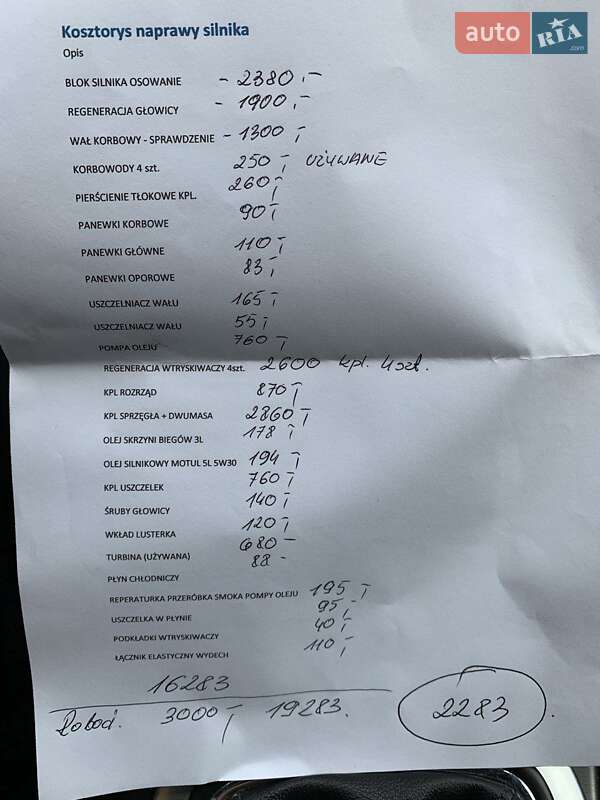 Kosztorys naprawy silnika
auto RIA.com
Opis
BLOK SILNIKA OSOWANIE - 2380,-
REGENERACJA GŁOWICY - 1900,-
WAŁ KORBOWY - SPRAWDZENIE - 1300,-
KORBOWODY 4 szt. 250,- UŻYWANE
PIERŚCIENIE TŁOKOWE KPL. 260,-
PANEWKI KORBOWE 90,-
PANEWKI GŁÓWNE 110,-
PANEWKI OPOROWE 83,-
USZCZELNIACZ WAŁU 165,-
USZCZELNIACZ WAŁU 55,-
POMPA OLEJU 760,-
REGENERACJA WTRYSKIWACZY 4szt. 2600 kpl. 4szt.
KPL ROZRZĄD 870,-
KPL SPRZĘGŁA + DWUMASA 2860,-
OLEJ SKRZYNI BIEGÓW 3L 178,-
OLEJ SILNIKOWY MOTUL 5L 5W30 194,-
KPL USZCZELEK 760,-
ŚRUBY GŁOWICY 140,-
WKŁAD LUSTERKA 120,-
TURBINA (UŻYWANA) 680-
PŁYN CHŁODNICZY 88-
REPERATURKA PRZERÓBKA SMOKA POMPY OLEJU 195,-
USZCZELKA W PŁYNIE 95,-
PODKŁADKI WTRYSKIWACZY 40,-
ŁĄCZNIK ELASTYCZNY WYDECH 110,-
16283
Roboć. 3000,- 19283. 2283.